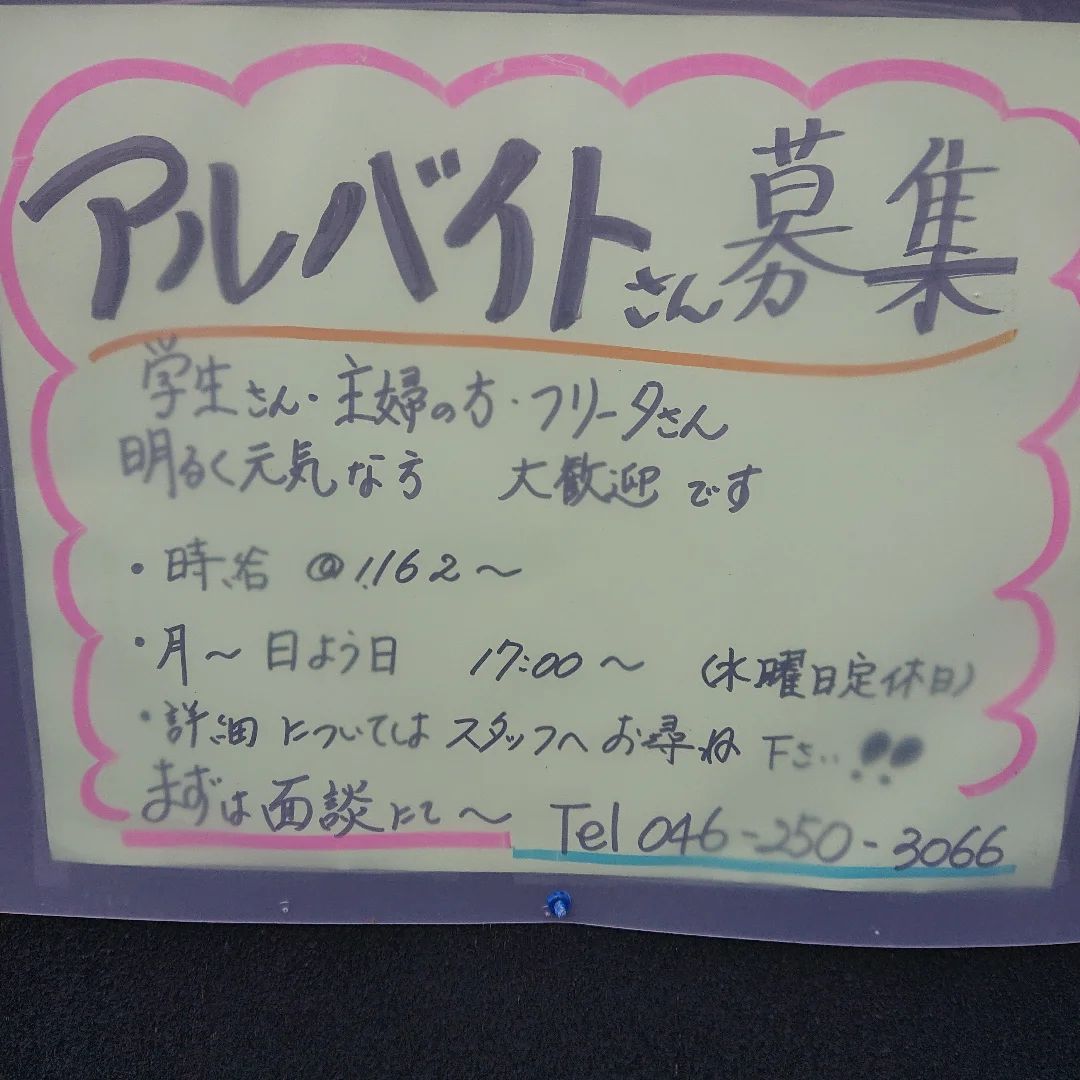 アルバイトさん募集
学生さん・主婦の方・フリータさん
明るく元気な方 大歓迎です
・時給 @1,162～
・月～日よう日 17:00～ (水曜日定休日)
・詳細についてはスタッフへお尋ね下さい!!
まずは面談にて～ Tel 046-250-3066